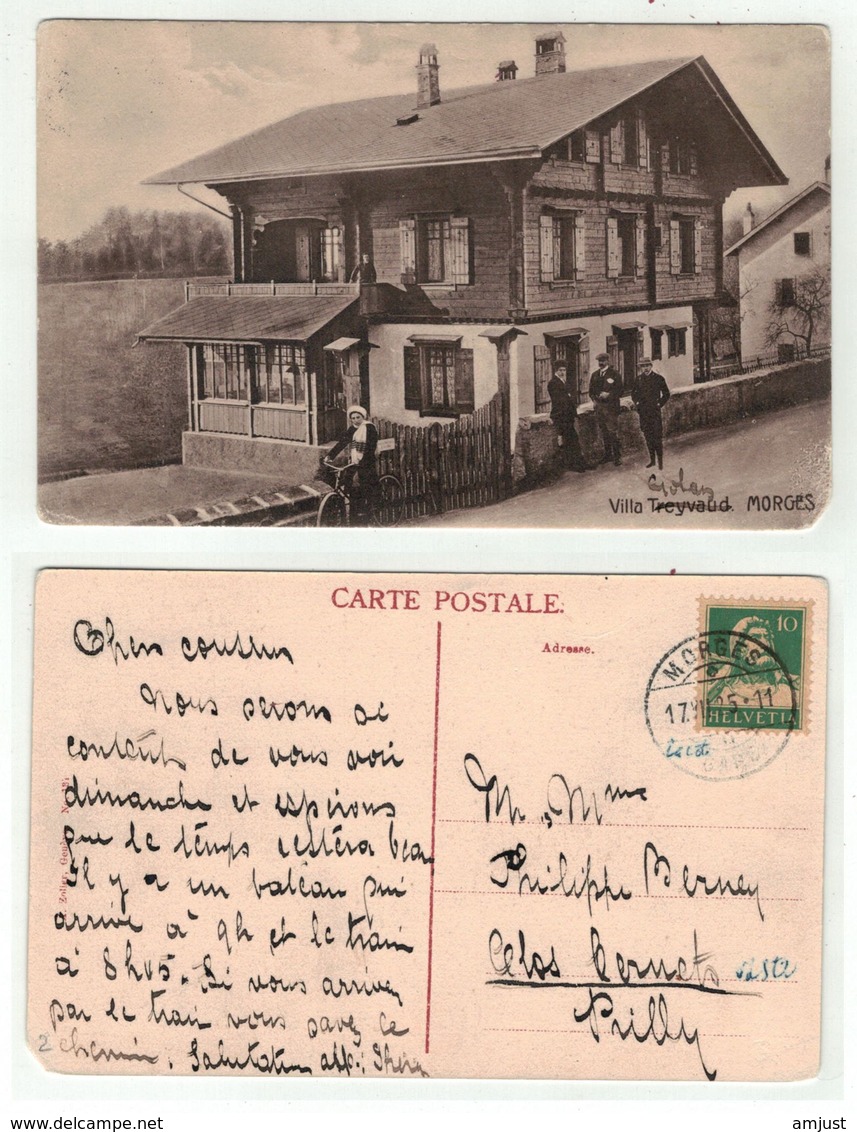 Golay
Villa Treyvaud. MORGES
CARTE POSTALE.
Adresse.
10
HELVETIA
MORGES
17.VI 25·11
Chers cousins
Nous serons
contents de vous voir
dimanche et espérons
que le temps restera beau
Il y a un bateau qui
arrive à 9h et le train
à 8h05. Si vous arrivez
par le train vous savez le
chemin. Salutations aff.
2
Mr, Mme
Philippe Berney
Clos Cernets
Prilly
delcampe.net
amjust